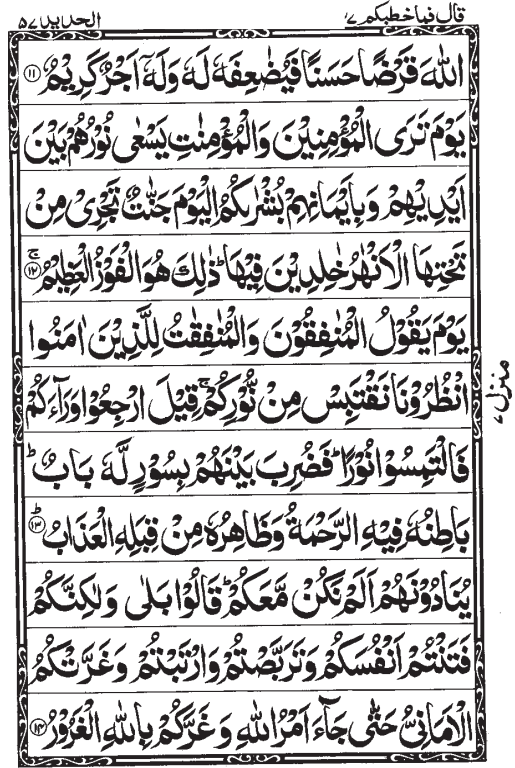 قال فما خطبكم ٢٧
الحديد ٥٧
اللّٰهَ قَرْضًا حَسَنًا فَيُضٰعِفَهٗ لَهٗ وَلَهٗۤ اَجْرٌ كَرِيْمٌ ﴿۱۱﴾
يَوْمَ تَرَى الْمُؤْمِنِيْنَ وَالْمُؤْمِنٰتِ يَسْعٰى نُوْرُهُمْ بَيْنَ
اَيْدِيْهِمْ وَبِاَيْمَانِهِمْ بُشْرٰىكُمُ الْيَوْمَ جَنّٰتٌ تَجْرِيْ مِنْ
تَحْتِهَا الْاَنْهٰرُ خٰلِدِيْنَ فِيْهَا ؕ ذٰلِكَ هُوَ الْفَوْزُ الْعَظِيْمُ ﴿۱۲﴾ۚ
يَوْمَ يَقُوْلُ الْمُنٰفِقُوْنَ وَالْمُنٰفِقٰتُ لِلَّذِيْنَ اٰمَنُوا
انْظُرُوْنَا نَقْتَبِسْ مِنْ نُّوْرِكُمْ ۚ قِيْلَ ارْجِعُوْا وَرَآءَكُمْ
فَالْتَمِسُوْا نُوْرًا ؕ فَضُرِبَ بَيْنَهُمْ بِسُوْرٍ لَّهٗ بَابٌ ؕ
بَاطِنُهٗ فِيْهِ الرَّحْمَةُ وَظَاهِرُهٗ مِنْ قِبَلِهِ الْعَذَابُ ﴿۱۳﴾ؕ
يُنَادُوْنَهُمْ اَلَمْ نَكُنْ مَّعَكُمْ ؕ قَالُوْا بَلٰى وَلٰكِنَّكُمْ
فَتَنْتُمْ اَنْفُسَكُمْ وَتَرَبَّصْتُمْ وَارْتَبْتُمْ وَغَرَّتْكُمُ
الْاَمَانِيُّ حَتّٰى جَآءَ اَمْرُ اللّٰهِ وَغَرَّكُمْ بِاللّٰهِ الْغَرُوْرُ ﴿۱۴﴾
منزل ٧